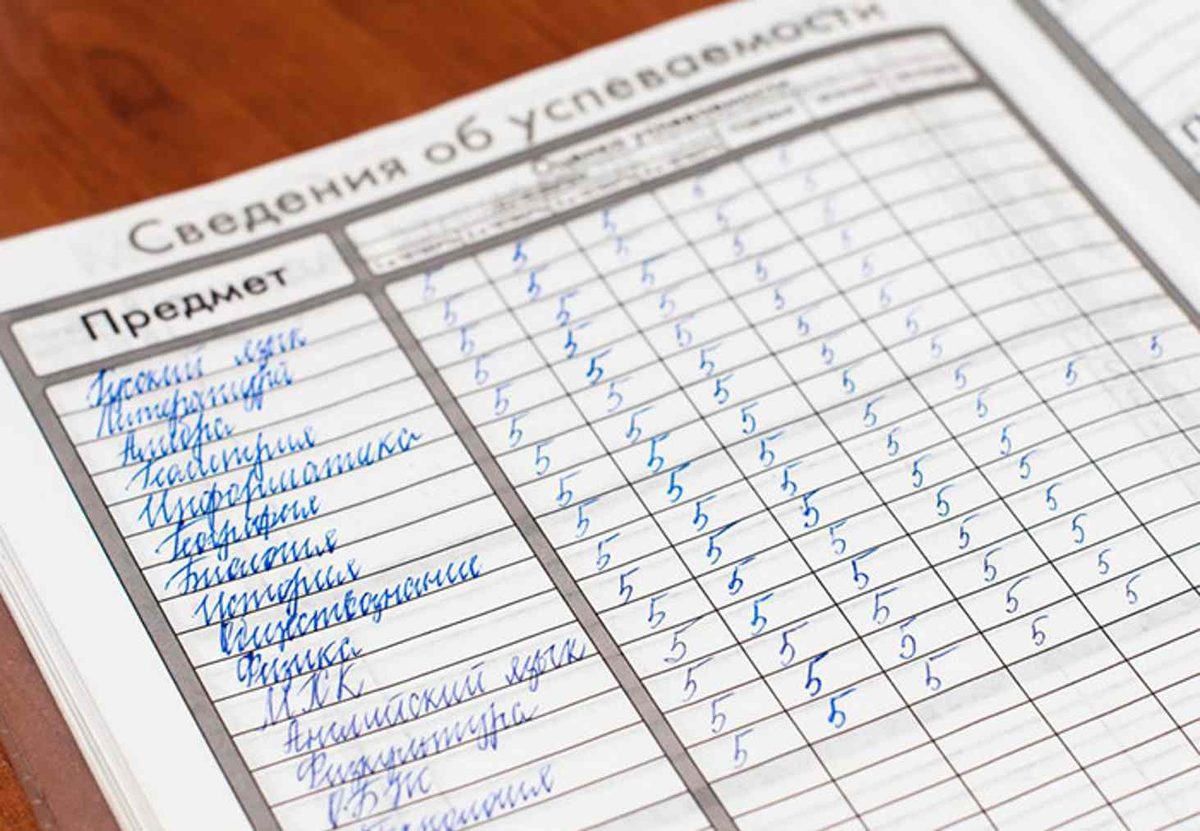 Сведения об успеваемости
Предмет
Оценка успеваемости
Русский язык 5 5 5 5 5
Литература 5 5 5 5 5
Алгебра 5 5 5 5 5
Геометрия 5 5 5 5 5
Информатика 5 5 5 5 5
География 5 5 5 5 5
Биология 5 5 5 5 5
История 5 5 5 5 5
Обществознание 5 5 5 5 5
Физика 5 5 5 5 5
МХК 5 5 5 5 5
Английский язык 5 5 5 5 5
Физкультура 5 5 5 5 5
ОБЖ 5 5 5 5 5
Технология 5 5 5 5 5